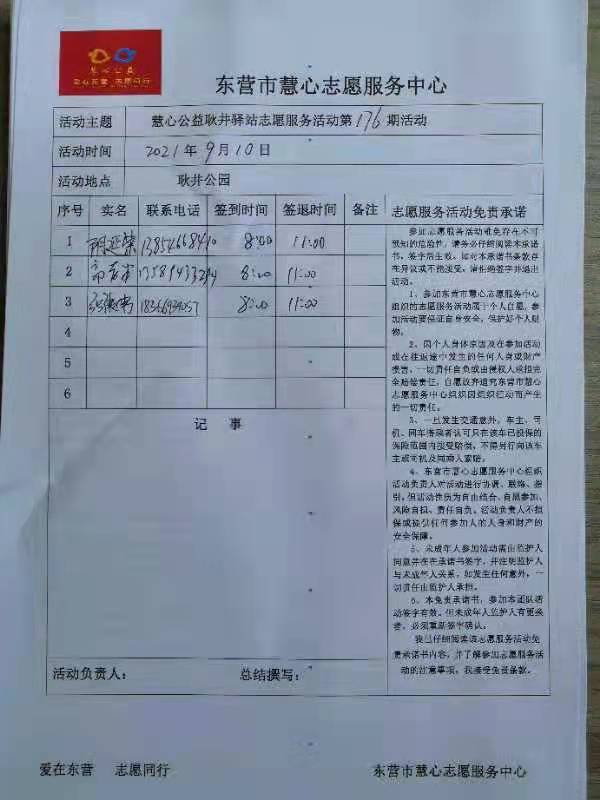 慧心公益
爱心东营 志愿同行
东营市慧心志愿服务中心
活动主题 慧心公益耿井驿站志愿服务活动第176期活动
活动时间 2021年9月10日
活动地点 耿井公园
序号 实名 联系电话 签到时间 签退时间 备注
1 8:00 11:00
2 8:00 11:00
3 8:00 11:00
4
5
6
记 事
活动负责人: 总结撰写:
志愿服务活动免责承诺
参加志愿服务活动难免存在不可
预知的危险性,请务必仔细阅读本承诺
书,签字后生效。如对本承诺书条款存
在异议或不能接受,请拒绝签字并退出
活动。
1、参加东营市慧心志愿服务中心
组织的志愿服务活动属于个人自愿,参
加活动要保证自身安全,保护好个人财
物。
2、因个人身体原因及在参加活动
或在往返途中发生的任何人身或财产
损害,一切责任自负或由侵权人承担完
全赔偿责任,自愿放弃追究东营市慧心
志愿服务中心组织因组织活动而产生
的一切责任。
3、一旦发生交通意外,车主、司
机、同车搭乘者认可只在该车已投保的
保险范围内接受赔偿,不得另行向该车
主或司机及同乘人索赔。
4、东营市慧心志愿服务中心组织
活动负责人对活动进行协调、联络、指
引,但活动性质为自由结合、自愿参加、
风险自担、责任自负。活动负责人不担
保或被引任何参加人的人身和财产的
安全保障。
5、未成年人参加活动需由监护人
同意并在在承诺书签字,并注明监护人
与未成年人关系,如发生任何意外,一
切责任由监护人承担。
6、本免责承诺书,参加本团队活
动签字有效。但未成年人监护人有更换
者,必须重新签字确认。
我已仔细阅读该志愿服务活动免
责承诺书内容,并了解参加志愿服务活
动的注意事项,我接受免责条款。
爱在东营 志愿同行 东营市慧心志愿服务中心